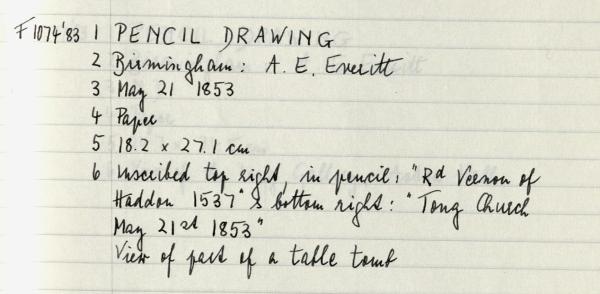 F1074'83 1 PENCIL DRAWING
2 Birmingham: A. E. Everitt
3 May 21 1853
4 Paper
5 18.2 x 27.1 cm
6 Inscribed top right, in pencil: "Rd Vernon of
Haddon 1537" & bottom right: "Tong Church
May 21st 1853"
View of part of a table tomb